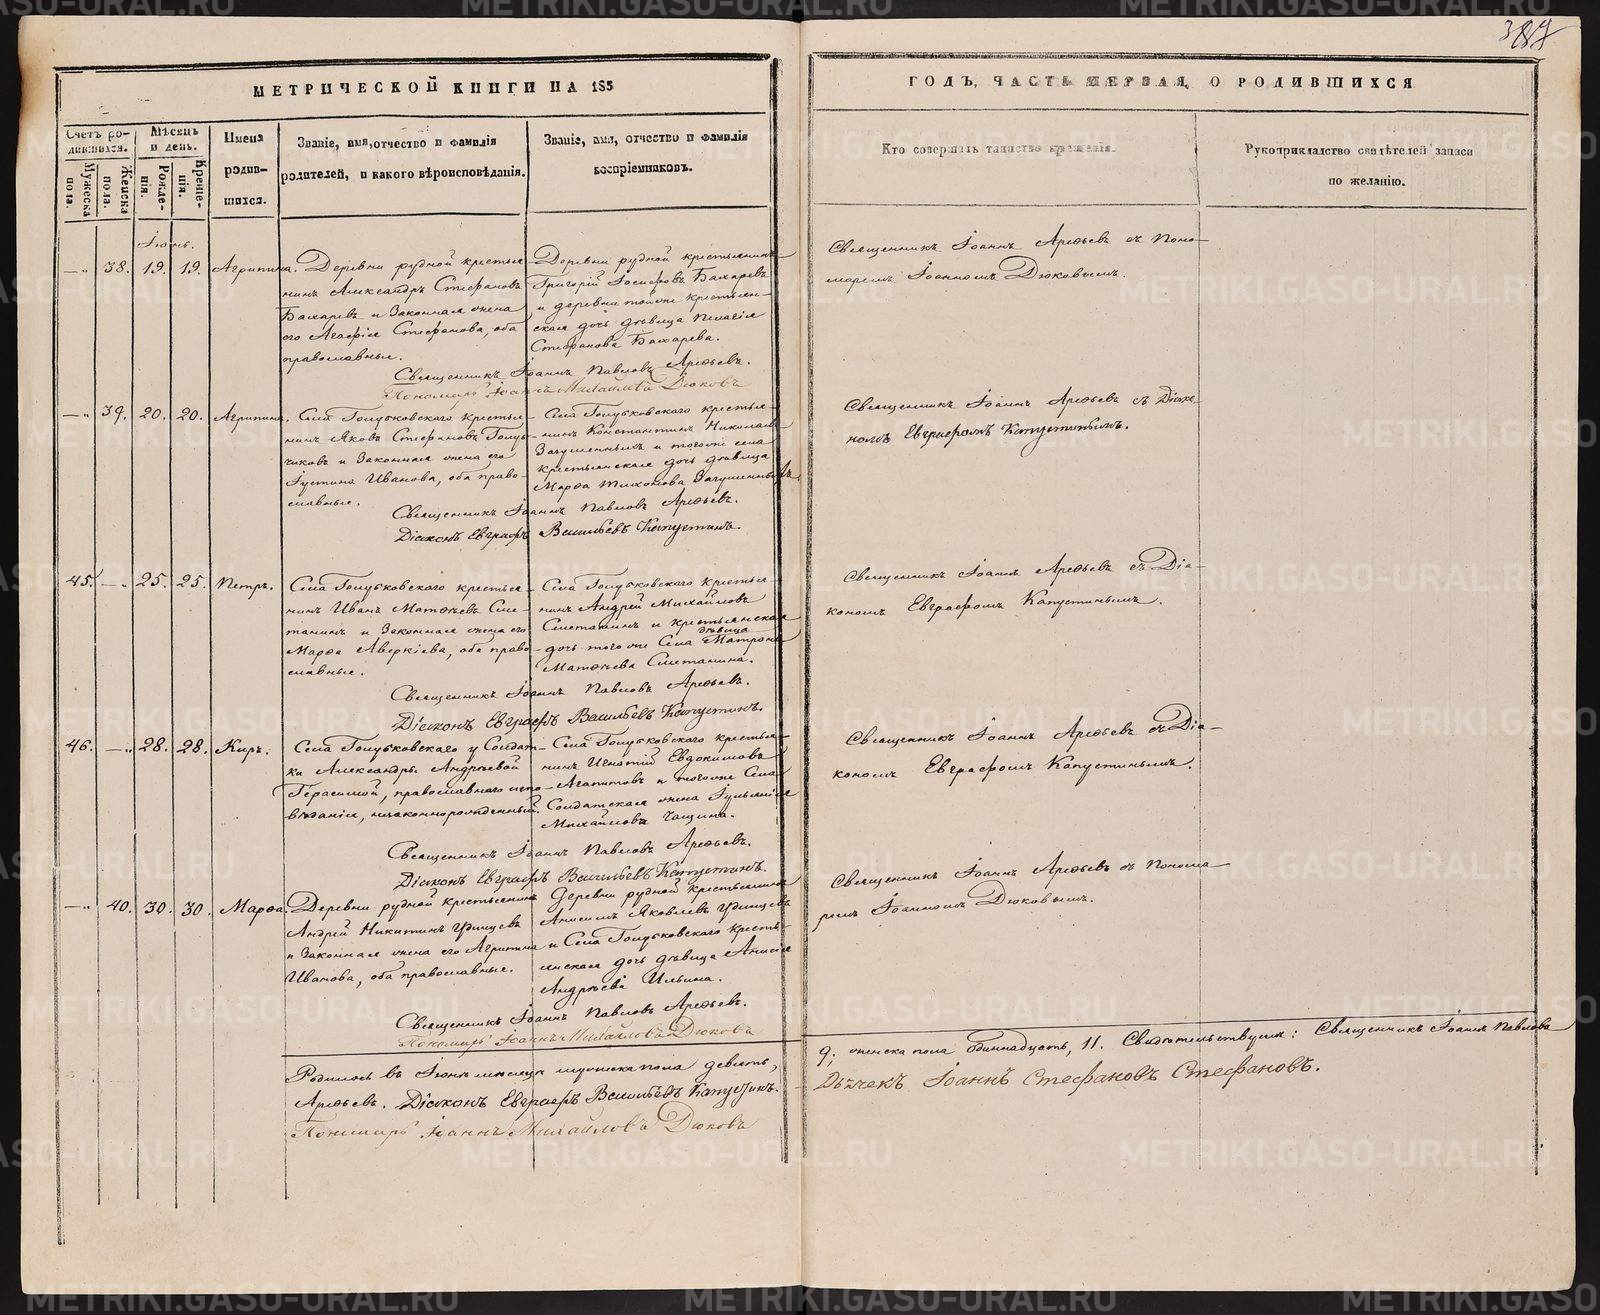 387
МЕТРИЧЕСКОЙ КНИГИ НА 185
ГОДЪ, ЧАСТЬ ПЕРВАЯ, О РОДИВШИХСЯ
Счетъ ро-
дившихся.
Мужеска
пола.
Женска
пола.
Мѣсяцъ
и день.
Рожде-
нія.
Креще-
нія.
Имена
родив-
шихся.
Званіе, имя, отчество и фамилія
родителей, и какого вѣроисповѣданія.
Званіе, имя, отчество и фамилія
воспріемниковъ.
Кто совершалъ таинство крещенія.
Рукоприкладство свидѣтелей записи
по желанію.
Іюнь.
—„ 38. 19. 19. Агрипина.
Деревни рудной крестья-
нинъ Александръ Стефановъ
Бахаревъ и Законная жена
его Агафія Стефанова, оба
православные.
Деревни рудной крестьянинъ
Григорій Іосифовъ Бахаревъ
и деревни тойже крестьян-
ская дочь дѣвица Пелагія
Стефанова Бахарева.
Священникъ Іоаннъ Арефьевъ съ Поно-
маремъ Іоанномъ Дюковымъ.
Священникъ Іоаннъ Павловъ Арефьевъ.
Пономарь Іоаннъ Михайловъ Дюковъ
—„ 39. 20. 20. Агрипина.
Села Голубковскаго крестья-
нинъ Яковъ Стефановъ Голуб-
чиковъ и Законная жена его
Іустина Иванова, оба право-
славные.
Села Голубковскаго крестья-
нинъ Константинъ Николаевъ
и тогоже села
крестьянская дочь дѣвица
Марфа Тихонова
Священникъ Іоаннъ Арефьевъ съ Діако-
номъ Евграфомъ Капустинымъ.
Священникъ Іоаннъ Павловъ Арефьевъ.
Діаконъ Евграфъ Васильевъ Капустинъ.
45. —„ 25. 25. Петръ.
Села Голубковскаго крестья-
нинъ Иванъ Матѳѣевъ Сме-
танинъ и Законная жена его
Марфа Аверкіева, оба право-
славные.
Села Голубковскаго крестья-
нинъ Андрей Михайловъ
Сметанинъ и крестьянская
дѣвица
дочь тогоже Села Матрона
Матѳѣева Сметанина.
Священникъ Іоаннъ Арефьевъ съ Діа-
кономъ Евграфомъ Капустинымъ.
Священникъ Іоаннъ Павловъ Арефьевъ.
Діаконъ Евграфъ Васильевъ Капустинъ.
46. —„ 28. 28. Киръ.
Села Голубковскаго у Солдат-
ки Александры Андреевой
Герасимой, православнаго испо-
вѣданія, незаконнорожденный.
Села Голубковскаго крестья-
нинъ Игнатій Евдокимовъ
Агапитовъ и тогоже Села
Солдатская жена Іульянія
Михайлова Чащина.
Священникъ Іоаннъ Арефьевъ съ Діа-
кономъ Евграфомъ Капустинымъ.
Священникъ Іоаннъ Павловъ Арефьевъ.
Діаконъ Евграфъ Васильевъ Капустинъ.
—„ 40. 30. 30. Марфа.
Деревни рудной крестьянинъ
Андрей Никитинъ Удинцевъ
и Законная жена его Агрипина
Иванова, оба православные.
Деревни рудной крестьянинъ
Анисимъ Яковлевъ Удинцевъ
и Села Голубковскаго кресть-
янская дочь дѣвица Анисія
Андреева Ильина.
Священникъ Іоаннъ Арефьевъ съ Понома-
ремъ Іоанномъ Дюковымъ.
Священникъ Іоаннъ Павловъ Арефьевъ.
Пономарь Іоаннъ Михайловъ Дюковъ
Родилось въ Іюнѣ мѣсяцѣ мужеска пола девять, 9; женска пола одиннадцать, 11. Свидѣтельствуемъ: Священникъ Іоаннъ Павловъ
Арефьевъ. Діаконъ Евграфъ Васильевъ Капустинъ. Дьячекъ Іоаннъ Стефановъ Стефановъ.
Пономарь Іоаннъ Михайловъ Дюковъ
METRIKI.GASO-URAL.RU